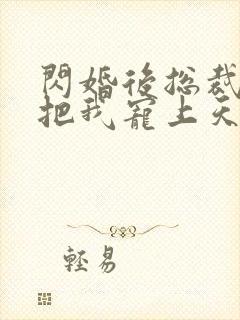 閃婚後總裁
把我寵上天
輕易